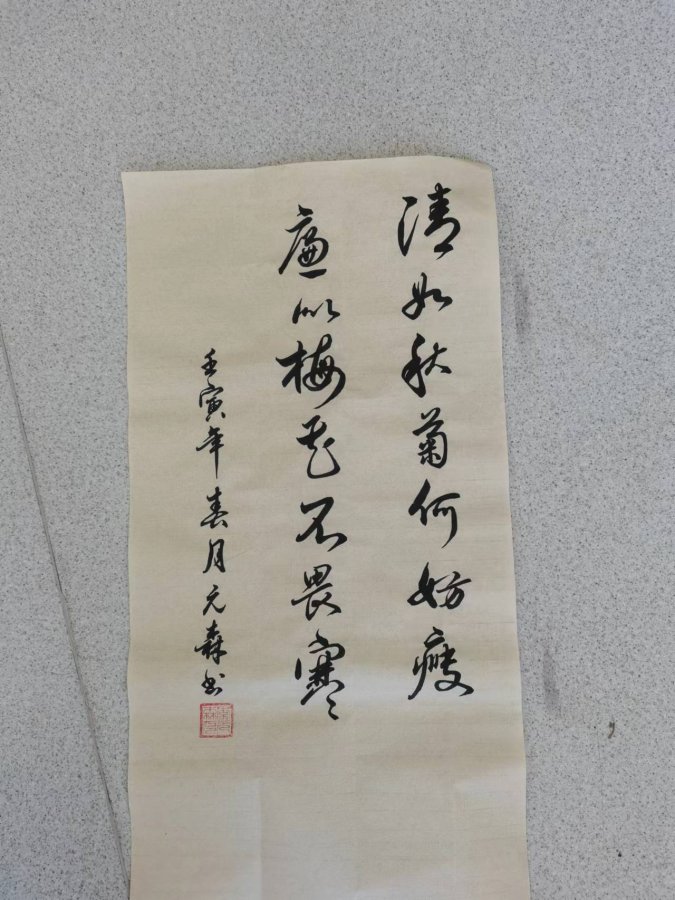 清如秋菊何妨瘦
廉似梅花不畏寒
壬寅年春月元森书